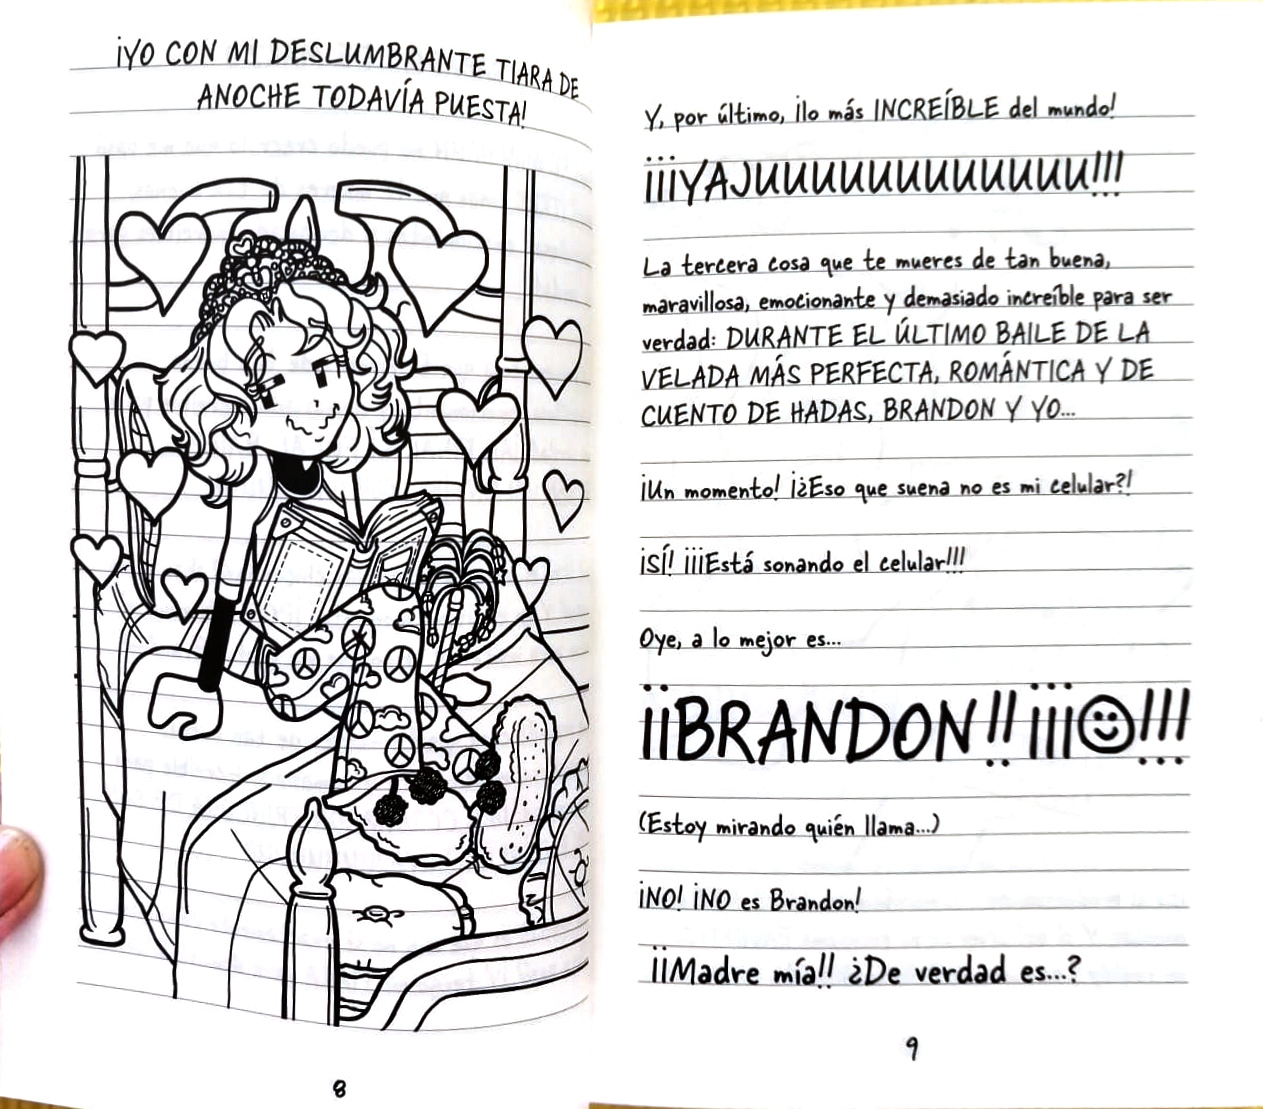 ¡YO CON MI DESLUMBRANTE TIARA DE
ANOCHE TODAVÍA PUESTA!
8
Y, por último, ¡lo más INCREÍBLE del mundo!
¡¡¡YAJUUUUUUUUUUUUU!!!
La tercera cosa que te mueres de tan buena,
maravillosa, emocionante y demasiado increíble para ser
verdad: DURANTE EL ÚLTIMO BAILE DE LA
VELADA MÁS PERFECTA, ROMÁNTICA Y DE
CUENTO DE HADAS, BRANDON Y YO...
¡Un momento! ¡¿Eso que suena no es mi celular?!
¡SÍ! ¡¡¡Está sonando el celular!!!
Oye, a lo mejor es...
¡¡BRANDON!! ¡¡¡☺!!!
(Estoy mirando quién llama...)
¡NO! ¡NO es Brandon!
¡¡Madre mía!! ¿De verdad es...?
9